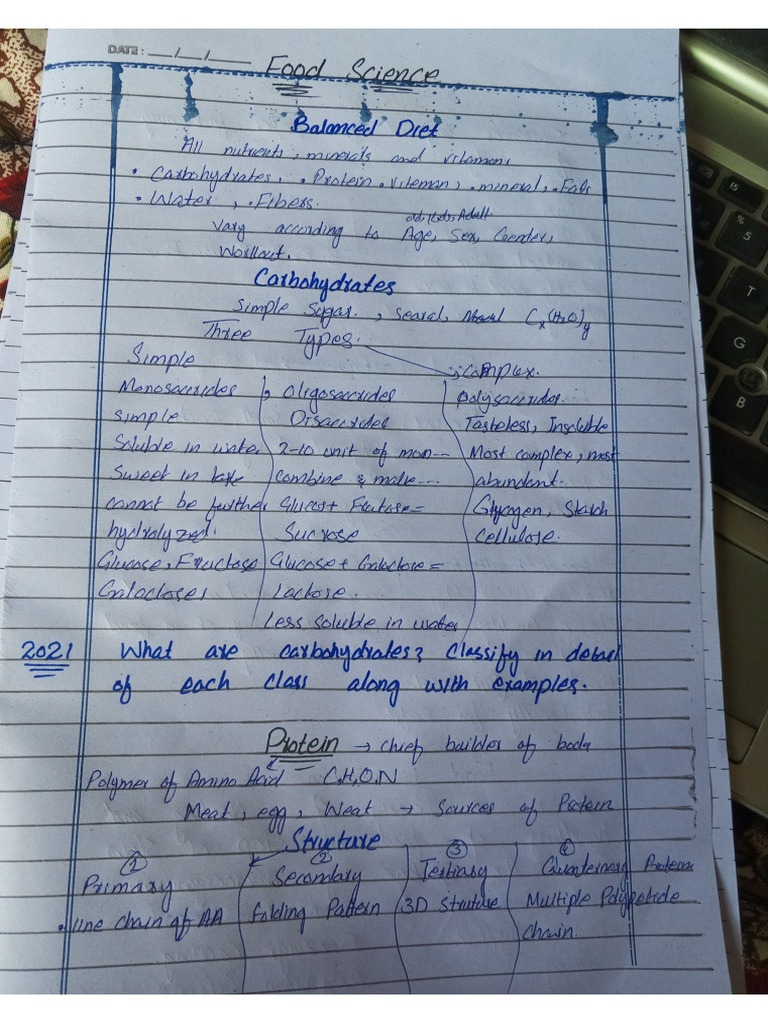 DATE: __/__/__
Food Science
Balanced Diet
All nutrients, minerals and vitamens
• Carbohydrates, • Protein • Viteman, • mineral, • Fats
• Water, • Fibers.
old, kids, Adult
Vary according to Age, Sex, Gender,
Workout.
Carbohydrates
Simple Sugar, Cx(H2O)y
Three Types.
Simple
complex.
Monosaccrides , Oligosaccrides polysaccrides.
simple Disaccrides Tasteless, Insoluble
Soluble in water 2-10 unit of mon--- Most complex, most
Sweet in combine & make--- abundant.
cannot be further Glucos+ Fructose= Glycogen, Starch
hydrolyzed. Sucrose cellulose.
Glucose, Fructose Glucose + Galactose =
Galactoses Lactose.
Less soluble in water
2021 What are carbohydrates? Classify in detail
of each class along with examples.
Protein → chief builder of body
Polymer of Amino Acid C,H,O,N
Meat, egg, Weat → Sources of Protein
Structure
① ② ③ ④
Primary Secondary Tertiary Quaternary Protein
• line chain of AA folding Pattern 3D structure Multiple Polypetide
chain.
T5
%
5
T
G
B